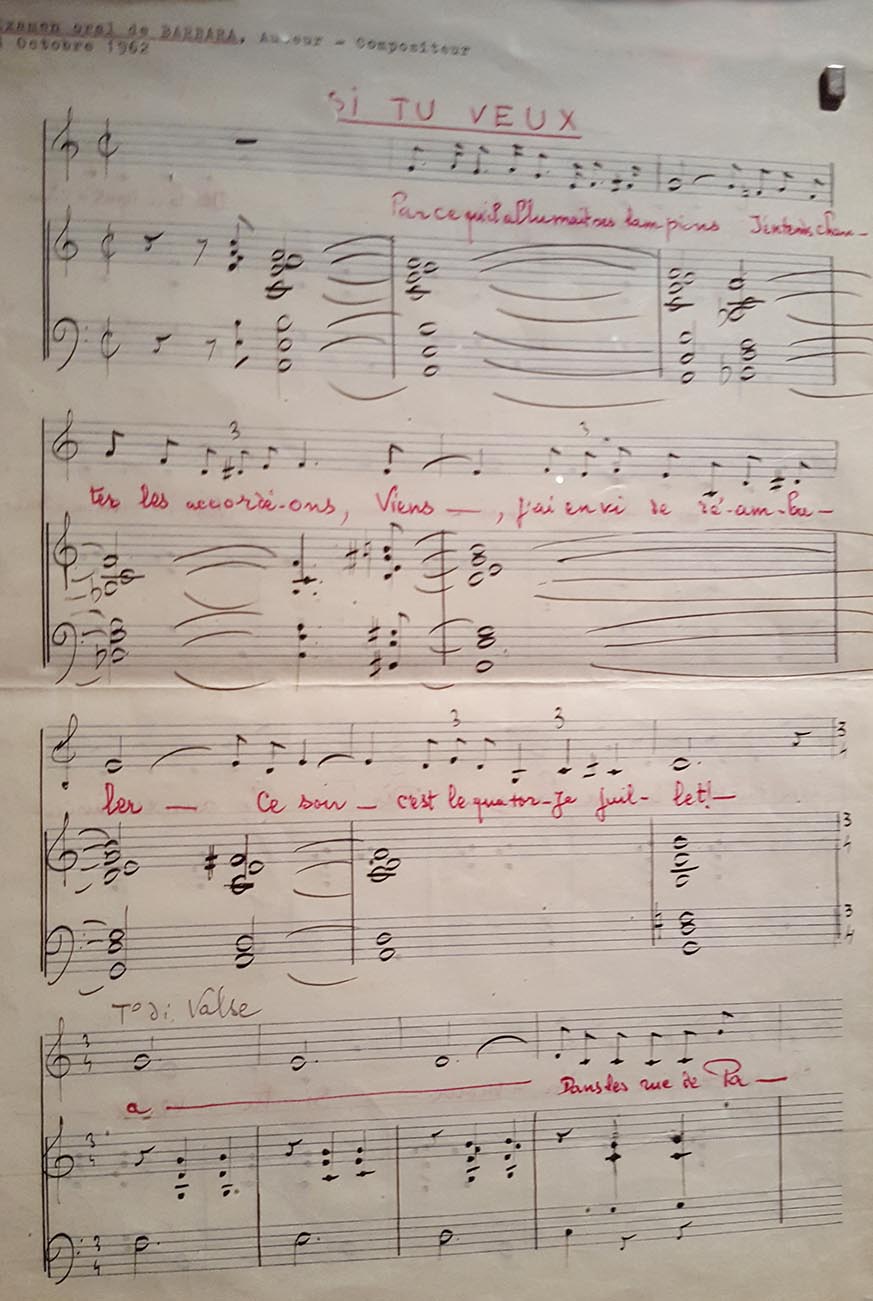 Examen oral de BARBARA, Auteur - Compositeur
Octobre 1962
SI TU VEUX
Par ce qu'il allumait ses lampions J'entends chan-
ter les accordé-ons, Viens —, j'ai envi de dé-am-bu-
3 3
ler — Ce soir — c'est le quator-ze juil-let! —
3 3
3 4
3 4
3 4
T° di Valse
3 4
a — Dans les rue de Pa —
3 4
3 4